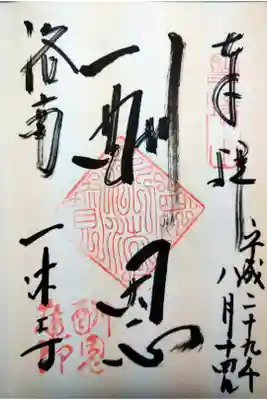 奉拝
平成二十九年
八月十四日
酬恩
洛南 一休寺